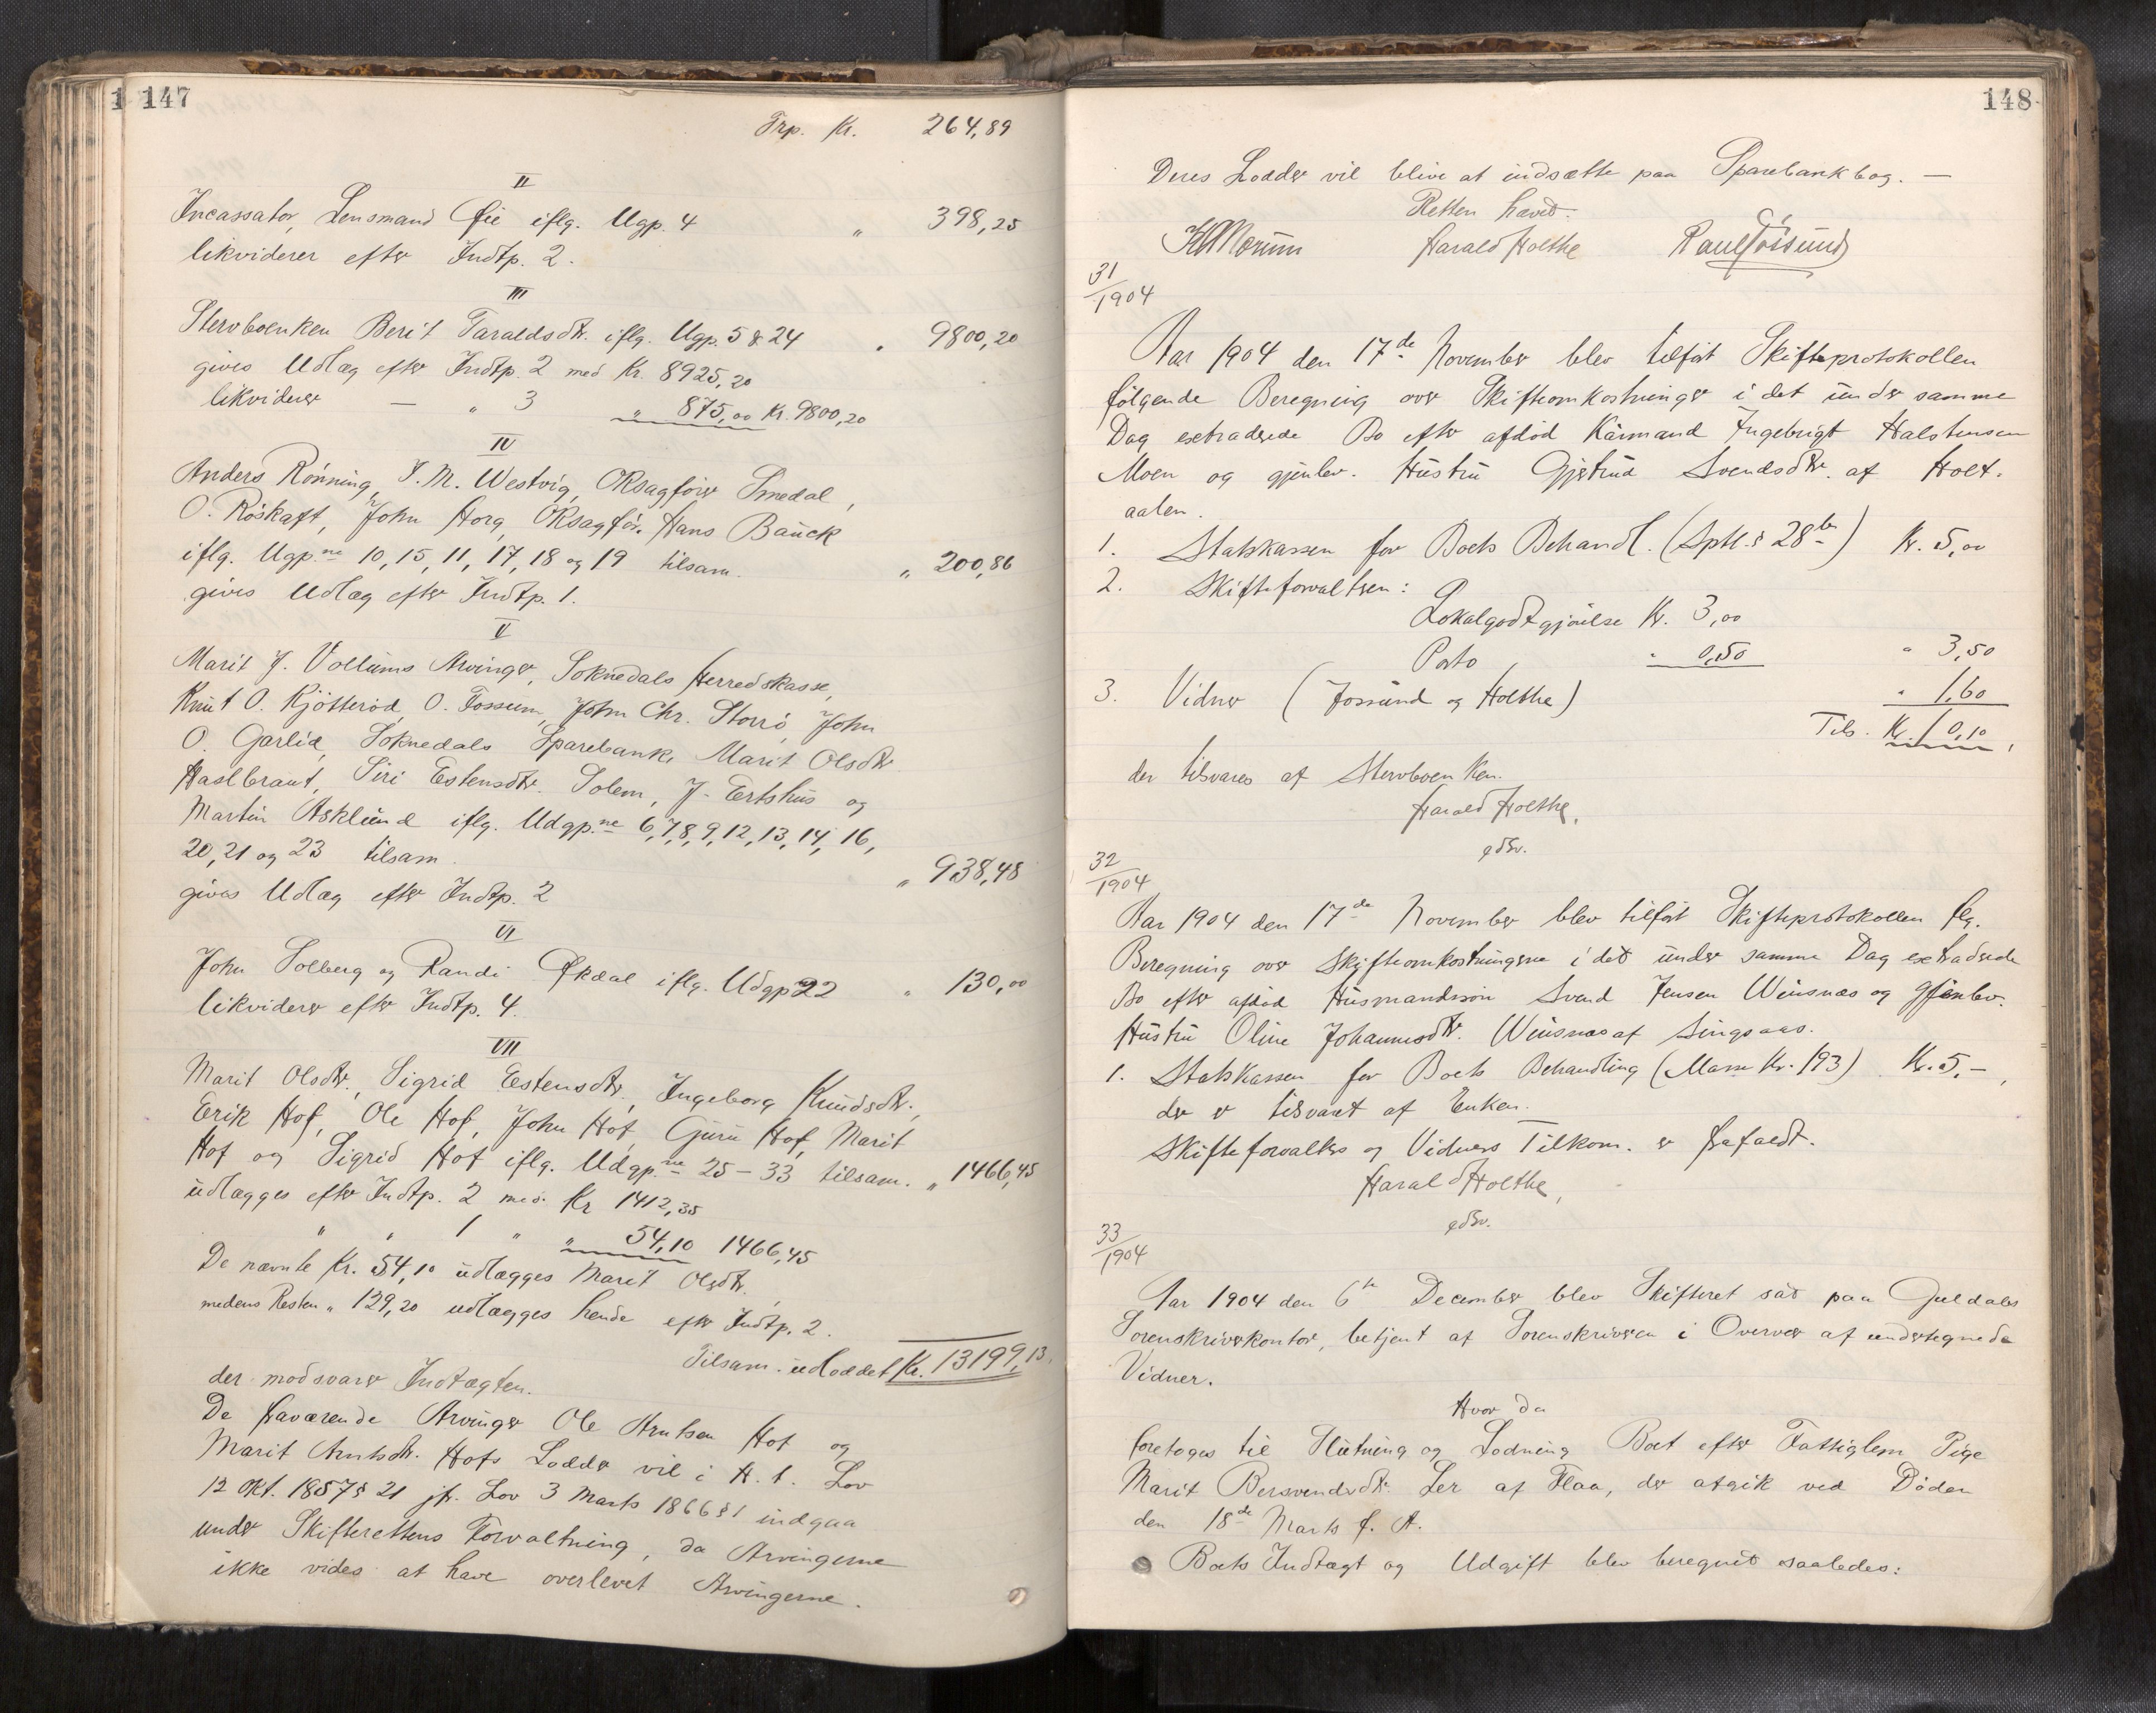 147
Trp. Kr. 264,89
II
Incassator, Lensmand Øie iflg. Ugp. 4 " 398,25
likviderer efter Indtp. 2.
III
Stervboenken Berit Taraldsdtr. iflg. Ugp. 5 & 24 " 9800,20
gives Udlæg efter Indtp. 2 med Kr. 8925,20
likviderer — " 3 " 875,00 Kr. 9800,20
IV
Anders Rønning, J. M. Westvig, ORsagfører Smedal,
O. Röskaft, John Horg, ORsagför. Hans Bauck
iflg. Ugp.ne 10, 15, 11, 17, 18 og 19 tilsam. " 200,86
gives Udlæg efter Indtp. 1.
V
Marit J. Vollums Arvinger, Soknedals Herredskasse,
Knut O. Kjötteröd, O. Fossum, John Chr. Storrö, John
O. Garlid, Soknedals Sparebank, Marit Olsdtr
Haslbraut, Siri Estensdtr. Solem, J. Ertshus og
Martin Asklund iflg. Udgp.ne 6, 7, 8, 9, 12, 13, 14, 16,
20, 21 og 23 tilsam. " 938,48
gives Udlæg efter Indtp. 2
VI
John Solberg og Randi Økdal iflg. Udgp 22 " 130,00
likviderer efter Indtp. 4.
VII
Marit Olsdtr., Sigrid Estensdtr., Ingeborg Knudsdtr.,
Erik Hof, Ole Hof, John Hof, Guru Hof, Marit
Hof og Sigrid Hof iflg. Udgp.ne 25 – 33 tilsam. " 1466,45
udlægges efter Indtp. 2 med Kr 1412,35
" " 1 " " 54,10 1466,45
De nævnte Kr. 54,10 udlægges Marit Olsdtr.,
medens Resten " 129,20 udlægges hende efter Indtp. 2.
Tilsam. udloddet Kr. 13199,13,
der modsvarer Indtægten.
De fraværende Arvinger Ole Arntsen Hof og
Marit Arntsdtr. Hofs Lodder vil i H. t. Lov
12 Okt. 1857 § 21 jfr. Lov 3 Marts 1866 § 1 indgaa
under Skifterettens Forvaltning, da Arvingerne
ikke vides at have overlevet Arvingerne.
148
Deres Lodder vil blive at indsætte paa Sparebankbog. —
Retten hævet.
Harald Holthe
31/1904
Aar 1904 den 17de November blev tilført Skifteprotokollen
følgende Beregning over Skifteomkostninger i det under samme
Dag extraderede Bo efter afdöd Kårmand Ingebrigt Halstensen
Moen og gjenlev. Hustru Gjertrud Svendsdtr. af Holt-
aalen.
1. Statskassen for Boets Behandl. (Sptl. § 28 ) Kr. 5,00
2. Skifteforvalteren:
Lokalgodtgjörelse Kr. 3,00
Porto " 0,50 " 3,50
3. Vidner (Jossund og Holthe) " 1,60
Tils. Kr. 10,10,
der tilsvares af Stervboenken.
Harald Holthe,
edsv.
32/1904
Aar 1904 den 17de November blev tilført Skifteprotokollen flg.
Beregning over Skifteomkostningerne i det under samme Dag extraderede
Bo efter afdöd Husmandssön Svend Jensen Winsnes og gjenlev.
Hustru Oline Johannesdtr. Winsnes af Singsaas.
1. Statskassen for Boets Behandling (Masse Kr. 193) Kr. 5,–,
der er tilsvaret af Enken.
Skifteforvalters og Vidners Tilkom. er frafaldt.
Harald Holthe,
edsv.
33/1904
Aar 1904 den 6te December blev Skifteret sat paa Guldals
Sorenskriverkontor, betjent af Sorenskriveren i Overvær af undertegnede
Vidner.
Hvor da
foretoges til Slutning og Lodning Boet efter Fattiglem Pige
Marit Bersvendsdtr. Ler af Flaa, der afgik ved Döden
den 18de Marts f. A.
Boets Indtægt og Udgift blev beregnet saaledes: